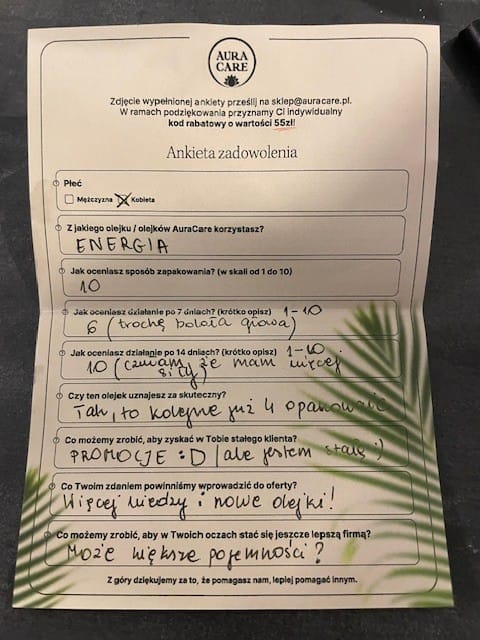 AURA
CARE
Zdjęcie wypełnionej ankiety prześlij na sklep@auracare.pl.
W ramach podziękowania przyznamy Ci indywidualny
kod rabatowy o wartości 55zł!
Ankieta zadowolenia
Płeć
Mężczyzna Kobieta
Z jakiego olejku / olejków AuraCare korzystasz?
ENERGIA
Jak oceniasz sposób zapakowania? (w skali od 1 do 10)
10
Jak oceniasz działanie po 7 dniach? (krótko opisz) 1-10
6 (trochę bolała głowa)
Jak oceniasz działanie po 14 dniach? (krótko opisz) 1-10
10 (czuwam, że mam więcej
siły)
Czy ten olejek uznajesz za skuteczny?
Tak, to kolejne już 4 opakowanie
Co możemy zrobić, aby zyskać w Tobie stałego klienta?
PROMOCJE :D (ale jestem stałą :)
Co Twoim zdaniem powinniśmy wprowadzić do oferty?
Więcej wiedzy i nowe olejki!
Co możemy zrobić, aby w Twoich oczach stać się jeszcze lepszą firmą?
Może większe pojemności?
Z góry dziękujemy za to, że pomagasz nam, lepiej pomagać innym.